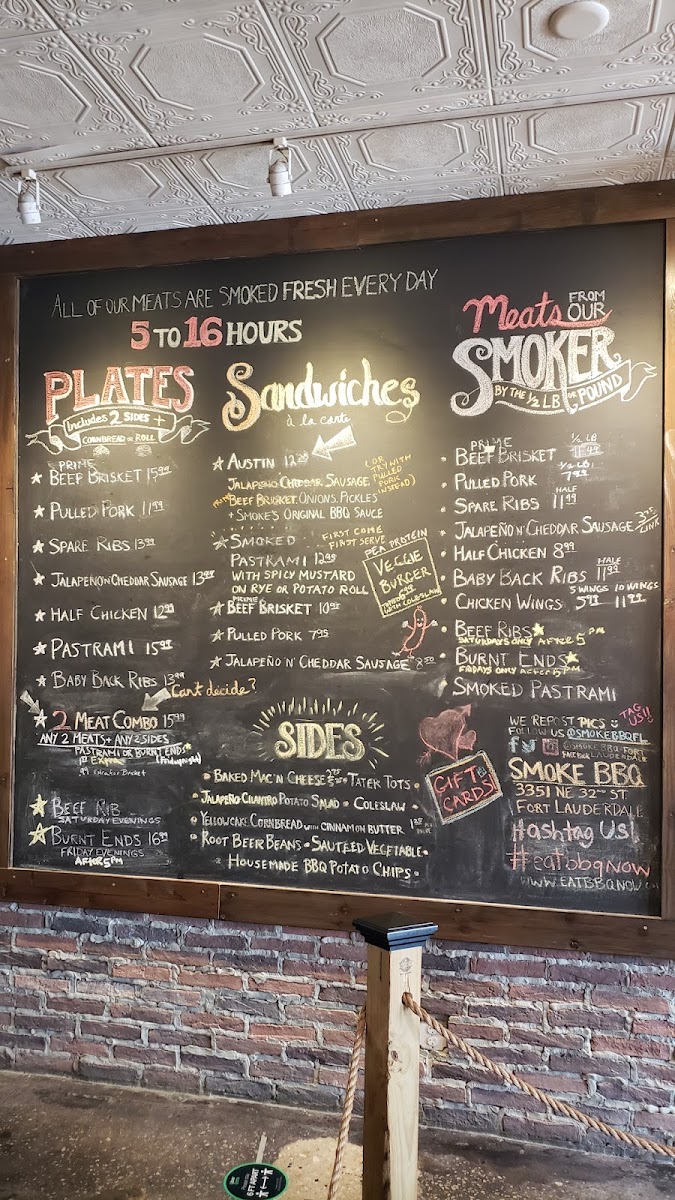 ALL OF OUR MEATS ARE SMOKED FRESH EVERY DAY
5 TO 16 HOURS
PLATES
Includes 2 SIDES +
CORNBREAD OR ROLL
PRIME
BEEF BRISKET 15.99
PULLED PORK 11.99
SPARE RIBS 13.99
JALAPEÑO N' CHEDDAR SAUSAGE 13.99
HALF CHICKEN 12.99
PASTRAMI 15.99
BABY BACK RIBS 13.99
Can't decide?
2 MEAT COMBO 15.99
ANY 2 MEATS + ANY 2 SIDES
PASTRAMI OR BURNT ENDS
EXTRA (Friday night)
BEEF RIB
SATURDAY EVENINGS
BURNT ENDS 16.99
FRIDAY EVENINGS
AFTER 5PM
Sandwiches
à la carte
AUSTIN 12.29
JALAPEÑO CHEDDAR SAUSAGE
PRIME BEEF BRISKET, ONIONS, PICKLES
+ SMOKE'S ORIGINAL BBQ SAUCE
(OR
TRY WITH
PULLED
PORK
INSTEAD)
SMOKED
FIRST COME
FIRST SERVE
PASTRAMI 12.99
WITH SPICY MUSTARD
ON RYE OR POTATO ROLL
PRIME
BEEF BRISKET 10.99
PULLED PORK 7.95
JALAPEÑO N' CHEDDAR SAUSAGE 8.50
PEA PROTEIN
VEGGIE
BURGER
6.99
WITH COLESLAW
SIDES
BAKED MAC N' CHEESE
TATER TOTS
JALAPEÑO-CILANTRO POTATO SALAD
COLESLAW
YELLOWCAKE CORNBREAD WITH CINNAMON BUTTER
ROOT BEER BEANS
SAUTEED VEGETABLE
HOUSEMADE BBQ POTATO CHIPS
GIFT
CARDS
Meats FROM
OUR
SMOKER
BY THE 1/2 LB OR POUND
PRIME
BEEF BRISKET 1/2 LB 11.99
PULLED PORK 1/2 LB 7.99
SPARE RIBS HALF 11.99
JALAPEÑO N' CHEDDAR SAUSAGE LINK
HALF CHICKEN 8.99
BABY BACK RIBS HALF 11.99
CHICKEN WINGS 5 WINGS 5.99 10 WINGS 11.99
BEEF RIBS
SATURDAYS ONLY AFTER 5 PM
BURNT ENDS
FRIDAYS ONLY AFTER 5PM
SMOKED PASTRAMI
WE REPOST PICS
TAG
US!!
FOLLOW US @SMOKEBBQFL
@SMOKEBBQ-FORT
FACEBOOK LAUDERDALE
SMOKE BBQ
3351 NE 32ND ST
FORT LAUDERDALE
Hashtag Us!
#eatbbqnow
WWW.EATBBQNOW.COM
6 FT APART